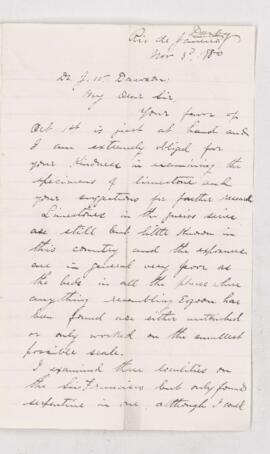 Derby
Rio de Janeiro
Nov 3d 1880
Dr J. W. Dawson
My Dear Sir,
Your favor of
Oct 1st is just at hand and
I am extremely obliged for
your kindness in examining the
specimens of limestone and
your suggestions for further research
Limestones in the gneiss series
are still but little known in
this country and the exposures
are in general very poor as
the beds in all the places where
anything resembling Eozoon has
been found are either untouched
or only worked on the smallest
possible scale.
I examined three localities on
the São Francisco but only found
serpentine in one, although I could